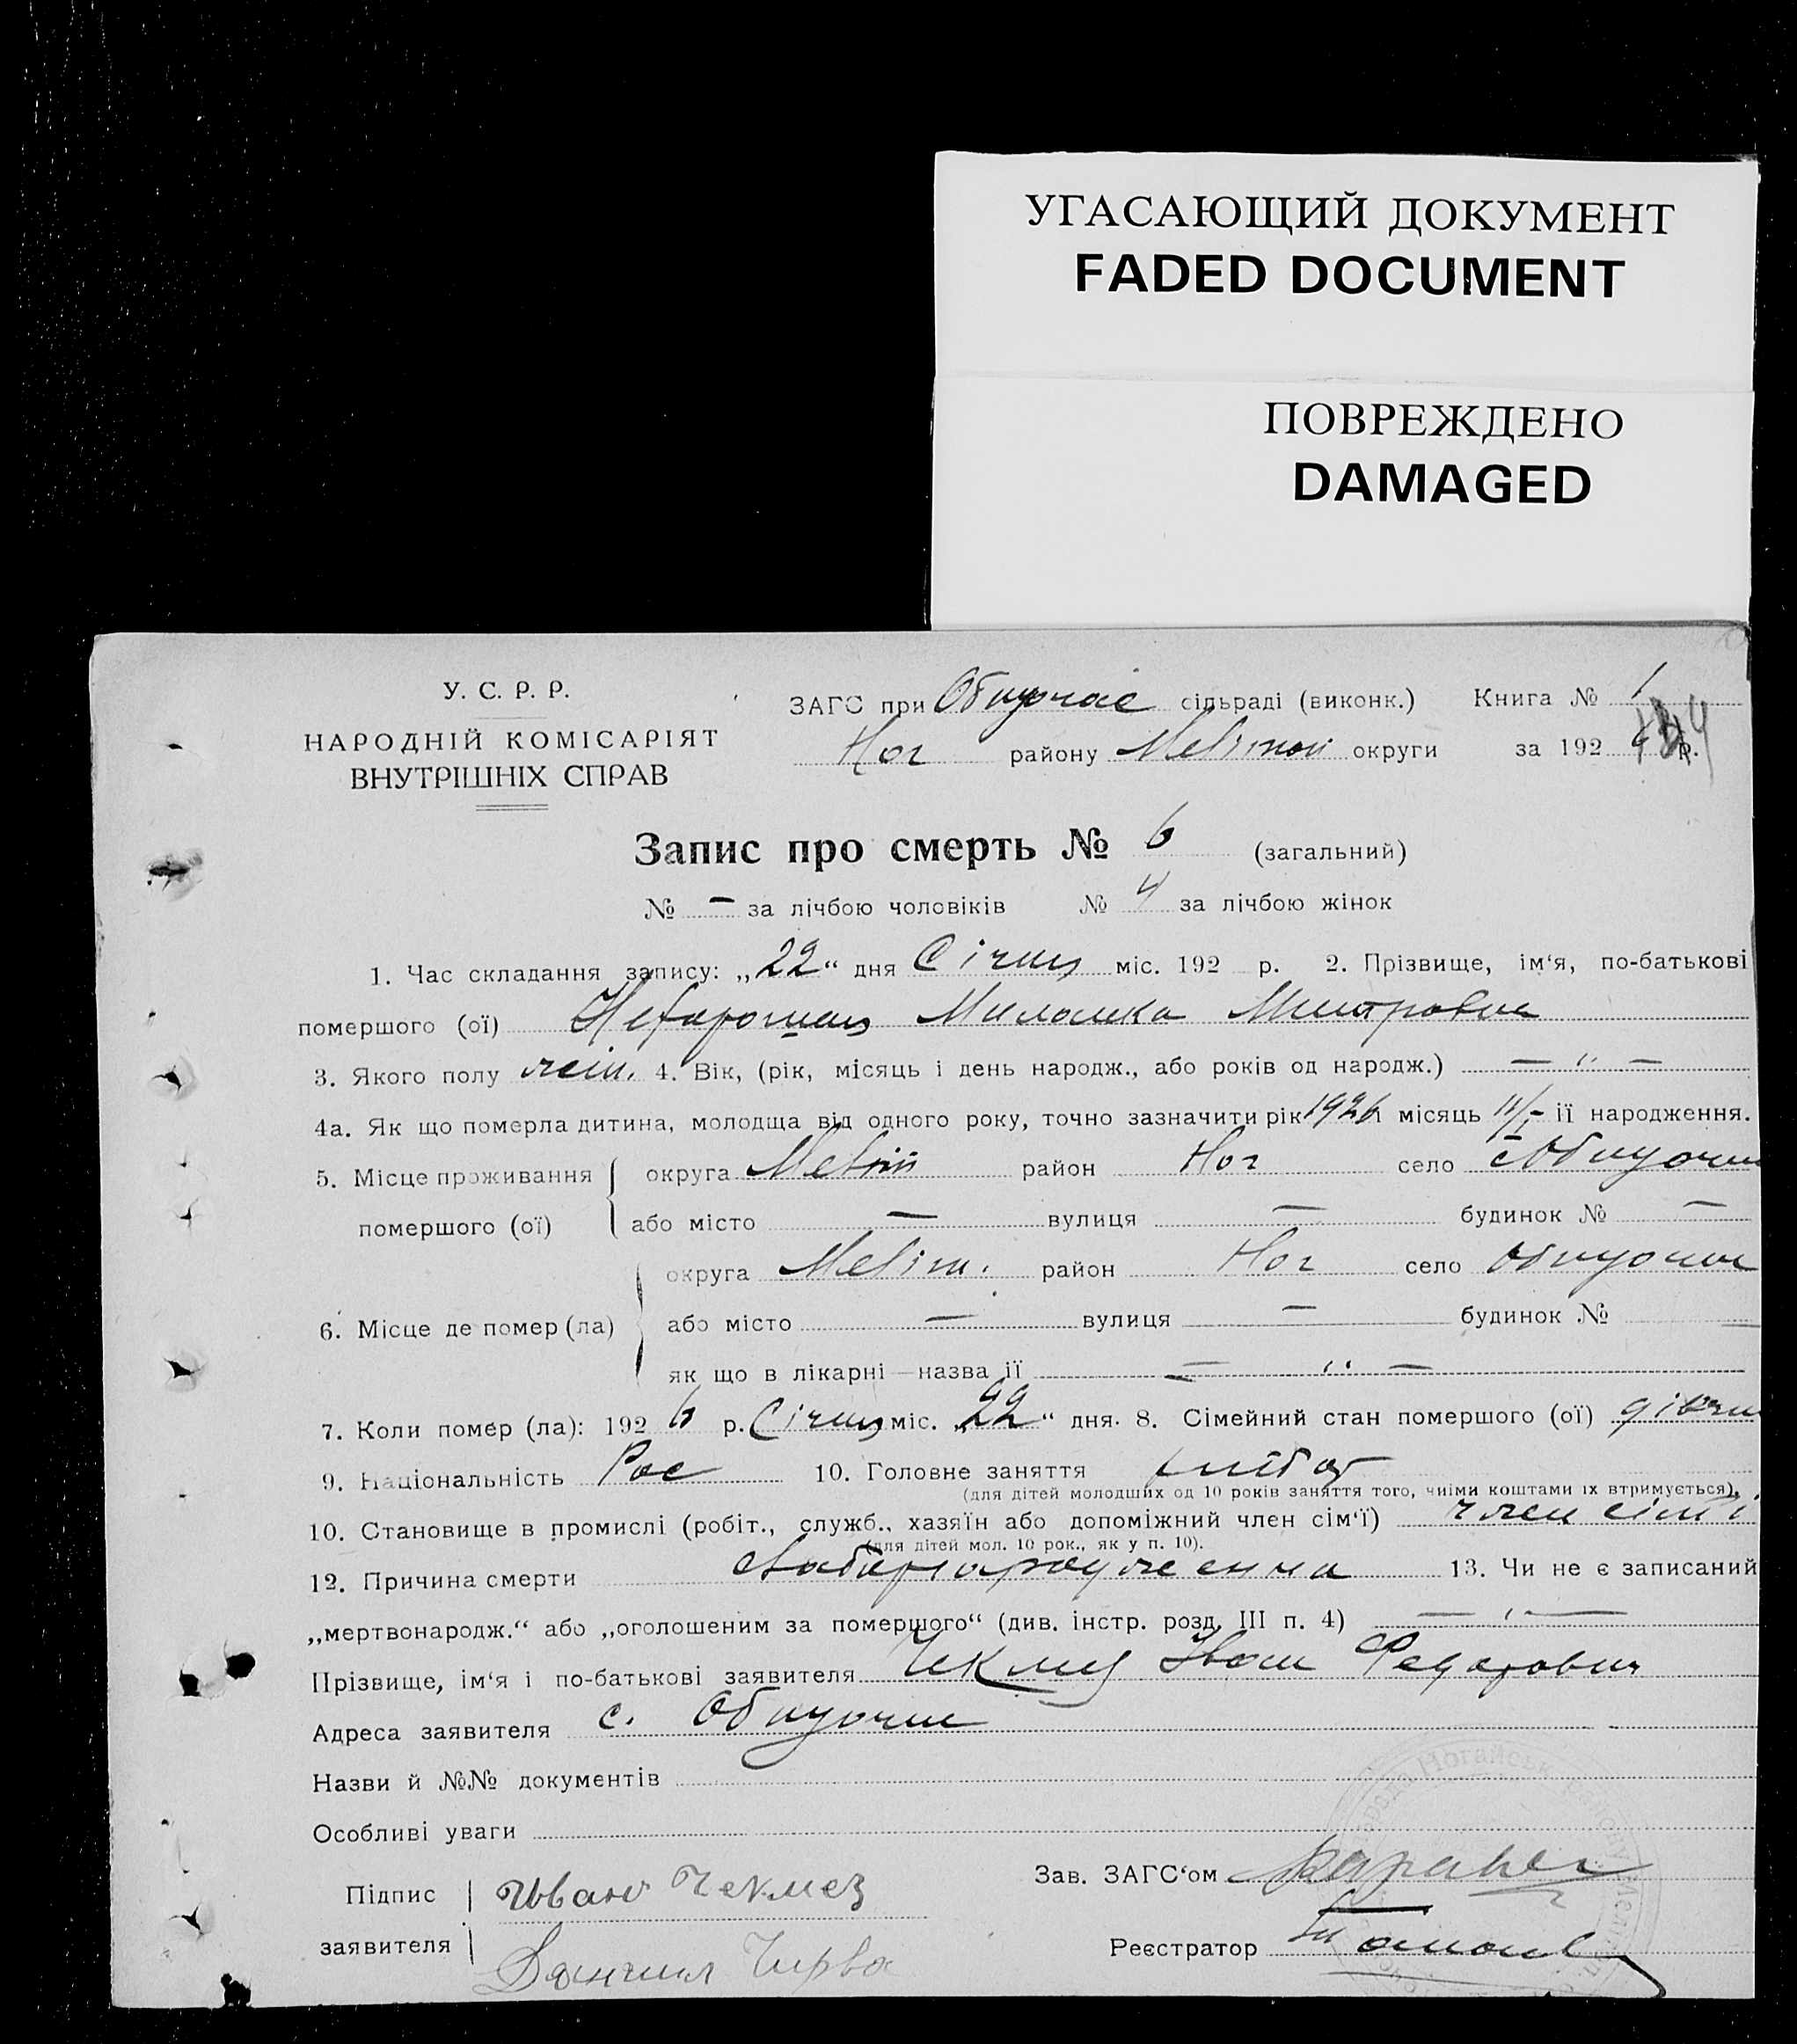 УГАСАЮЩИЙ ДОКУМЕНТ
FADED DOCUMENT
ПОВРЕЖДЕНО
DAMAGED
У. С. Р. Р.
НАРОДНІЙ КОМІСАРІЯТ
ВНУТРІШНІХ СПРАВ
ЗАГС при сільраді (виконк.) Книга № 1
Ног району округи за 192 р.
Запис про смерть № 6 (загальний)
№ — за лічбою чоловіків № 4 за лічбою жінок
1. Час складання запису: „22“ дня Січня міс. 192 р. 2. Прізвище, ім‘я, по-батькові
помершого (ої) Миланка
3. Якого полу жін. 4. Вік, (рік, місяць і день народж., або років од народж.) — „ —
4а. Як що померла дитина, молодша від одного року, точно зазначити рік 1926 місяць її народження.
5. Місце проживання округа район Ног село
помершого (ої) або місто — вулиця — будинок № —
округа Меліт. район Ног село
6. Місце де помер (ла) або місто — вулиця — будинок № —
як що в лікарні—назва її — „ —
7. Коли помер (ла): 192 6 р. Січня міс. „22“ дня. 8. Сімейний стан помершого (ої)
9. Національність Рос 10. Головне заняття хлібор
(для дітей молодших од 10 років заняття того, чиїми коштами їх втримується).
10. Становище в промислі (робіт., служб., хазяїн або допоміжний член сім‘ї) член сім'ї
(для дітей мол. 10 рок., як у п. 10).
12. Причина смерти 13. Чи не є записаний
„мертвонародж.“ або „оголошеним за помершого“ (див. інстр. розд. III п. 4) — „ —
Прізвище, ім‘я і по-батькові заявителя Іван Федорович
Адреса заявителя с.
Назви й №№ документів
Особливі уваги
Зав. ЗАГС‘ом
Підпис Иван Чекмез
заявителя Даниил Чирва
Реєстратор